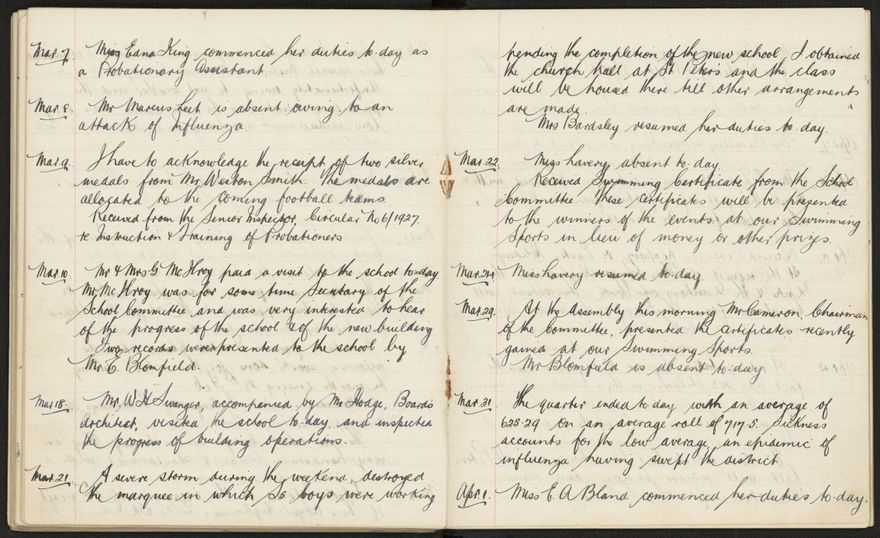 Mar. 7. Miss Edna King commenced her duties to-day as
a Probationary Assistant.
Mar. 8. Mr Marcus Leet is absent owing to an
attack of Influenza.
Mar. 9. I have to acknowledge the receipt of two silver
medals from Mr Weston Smith. The medals are
allocated to the coming football teams.
Received from the Senior Inspector, Circular No 6/1927
re Instruction & Training of Probationers
Mar. 10. Mr & Mrs G McIlroy paid a visit to the school to-day
Mr McIlroy was for some time Secretary of the
School Committee and was very interested to hear
of the progress of the school & of the new building
Two records were presented to the school by
Mr E. Blomfield.
Mar 18. Mr. W H Swanger, accompanied by Mr Hodge, Board's
Architect, visited the school to-day, and inspected
the progress of building operations.
Mar. 21. A severe storm during the weekend, destroyed
the marquee in which 50 boys were working
pending the completion of the new school. I obtained
the church hall at St Peters and the class
will be housed there till other arrangements
are made.
Mrs Bardsley resumed her duties to-day.
Mar. 22. Miss Lavery absent to-day
Received Swimming Certificate from the School
Committee. These certificates will be presented
to the winners of the events at our Swimming
Sports in lieu of money or other prizes.
Mar. 24. Miss Lavery resumed to-day.
Mar. 29. At the Assembly this morning Mr Cameron, Chairman
of the Committee, presented the certificates recently
gained at our Swimming Sports.
Mr Blomfield is absent to-day.
Mar. 31. The quarter ended to day, with an average of
625.29 on an average roll of 717.5. Sickness
accounts for the low average, an epidemic of
influenza having swept the district.
Apr. 1. Miss E. A Bland commenced her duties to-day.